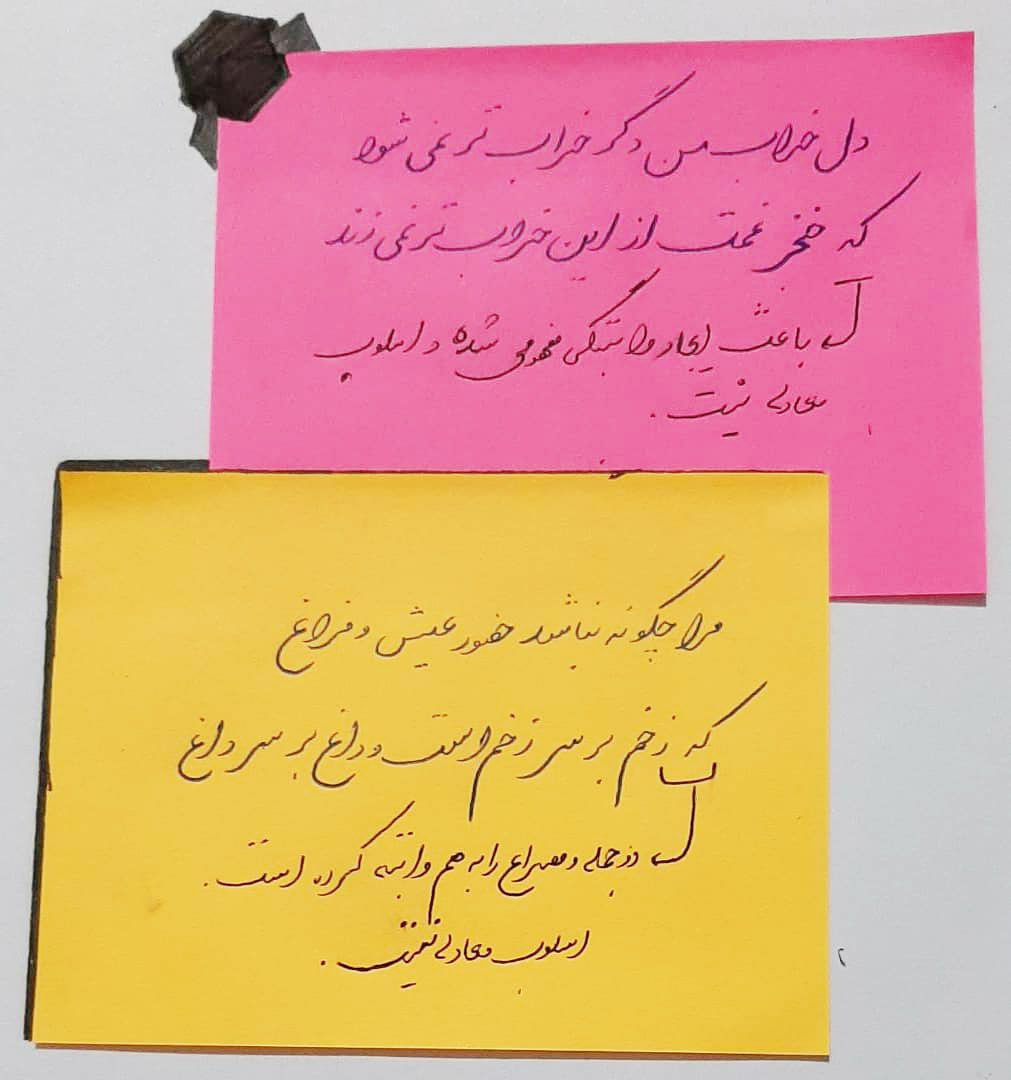 دل خراب من دگر خراب تر نمی شود
که خنجر غمت از این خراب تر نمی زند
باعث ایجاد وابستگی مفهومی شده و اسلوب
معادله نیست.
۱
مرا چگونه نباشد حضور عیش و فراغ
که زخم بر سر زخم است و داغ بر سر داغ
دو جمله و مصراع را به هم وابسته کرده است.
اسلوب معادله نیست.
۲